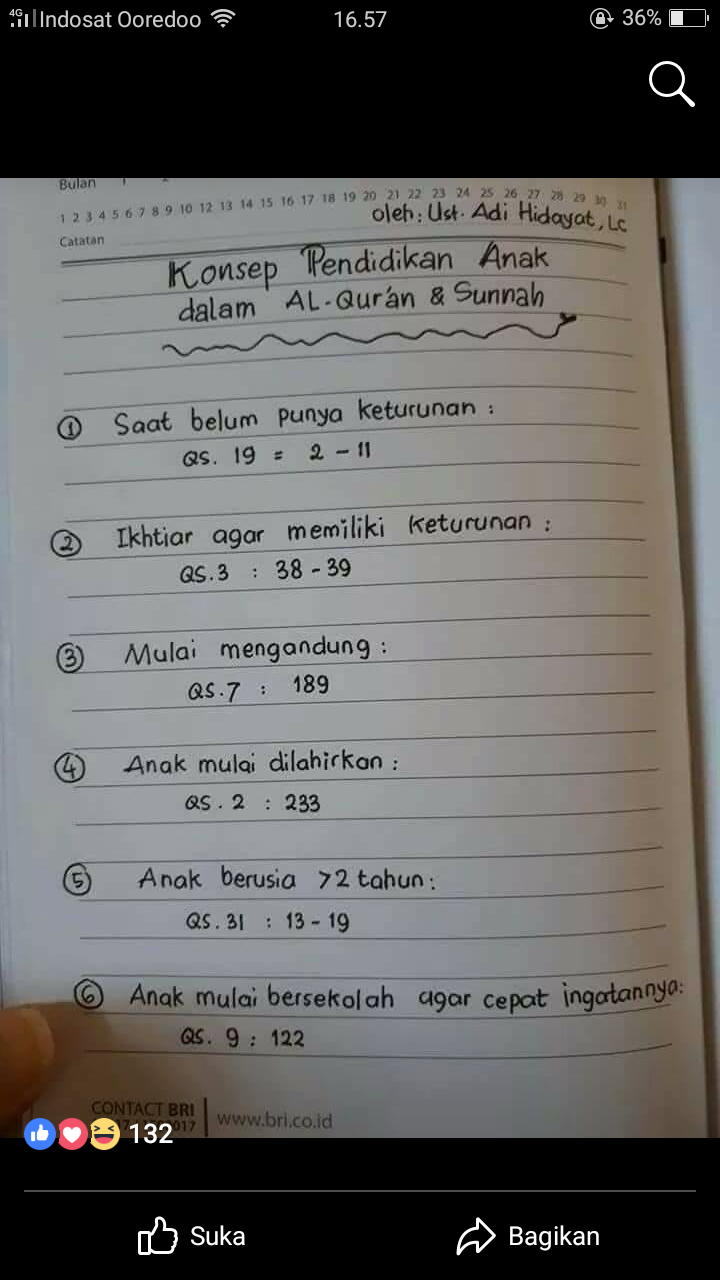 4G Indosat Ooredoo 16.57 36%
Bulan
1 2 3 4 5 6 7 8 9 10 12 13 14 15 16 17 18 19 20 21 22 23 24 25 26 27 28 29 30 31
oleh: Ust. Adi Hidayat, Lc
Catatan
Konsep Pendidikan Anak
dalam AL-Qur'an & Sunnah
① Saat belum punya keturunan :
QS. 19 = 2 - 11
② Ikhtiar agar memiliki keturunan :
QS.3 : 38 - 39
③ Mulai mengandung :
QS.7 : 189
④ Anak mulai dilahirkan :
QS. 2 : 233
⑤ Anak berusia >2 tahun :
QS. 31 : 13 - 19
⑥ Anak mulai bersekolah agar cepat ingatannya:
QS. 9 : 122
CONTACT BRI
017
www.bri.co.id
132
Suka
Bagikan